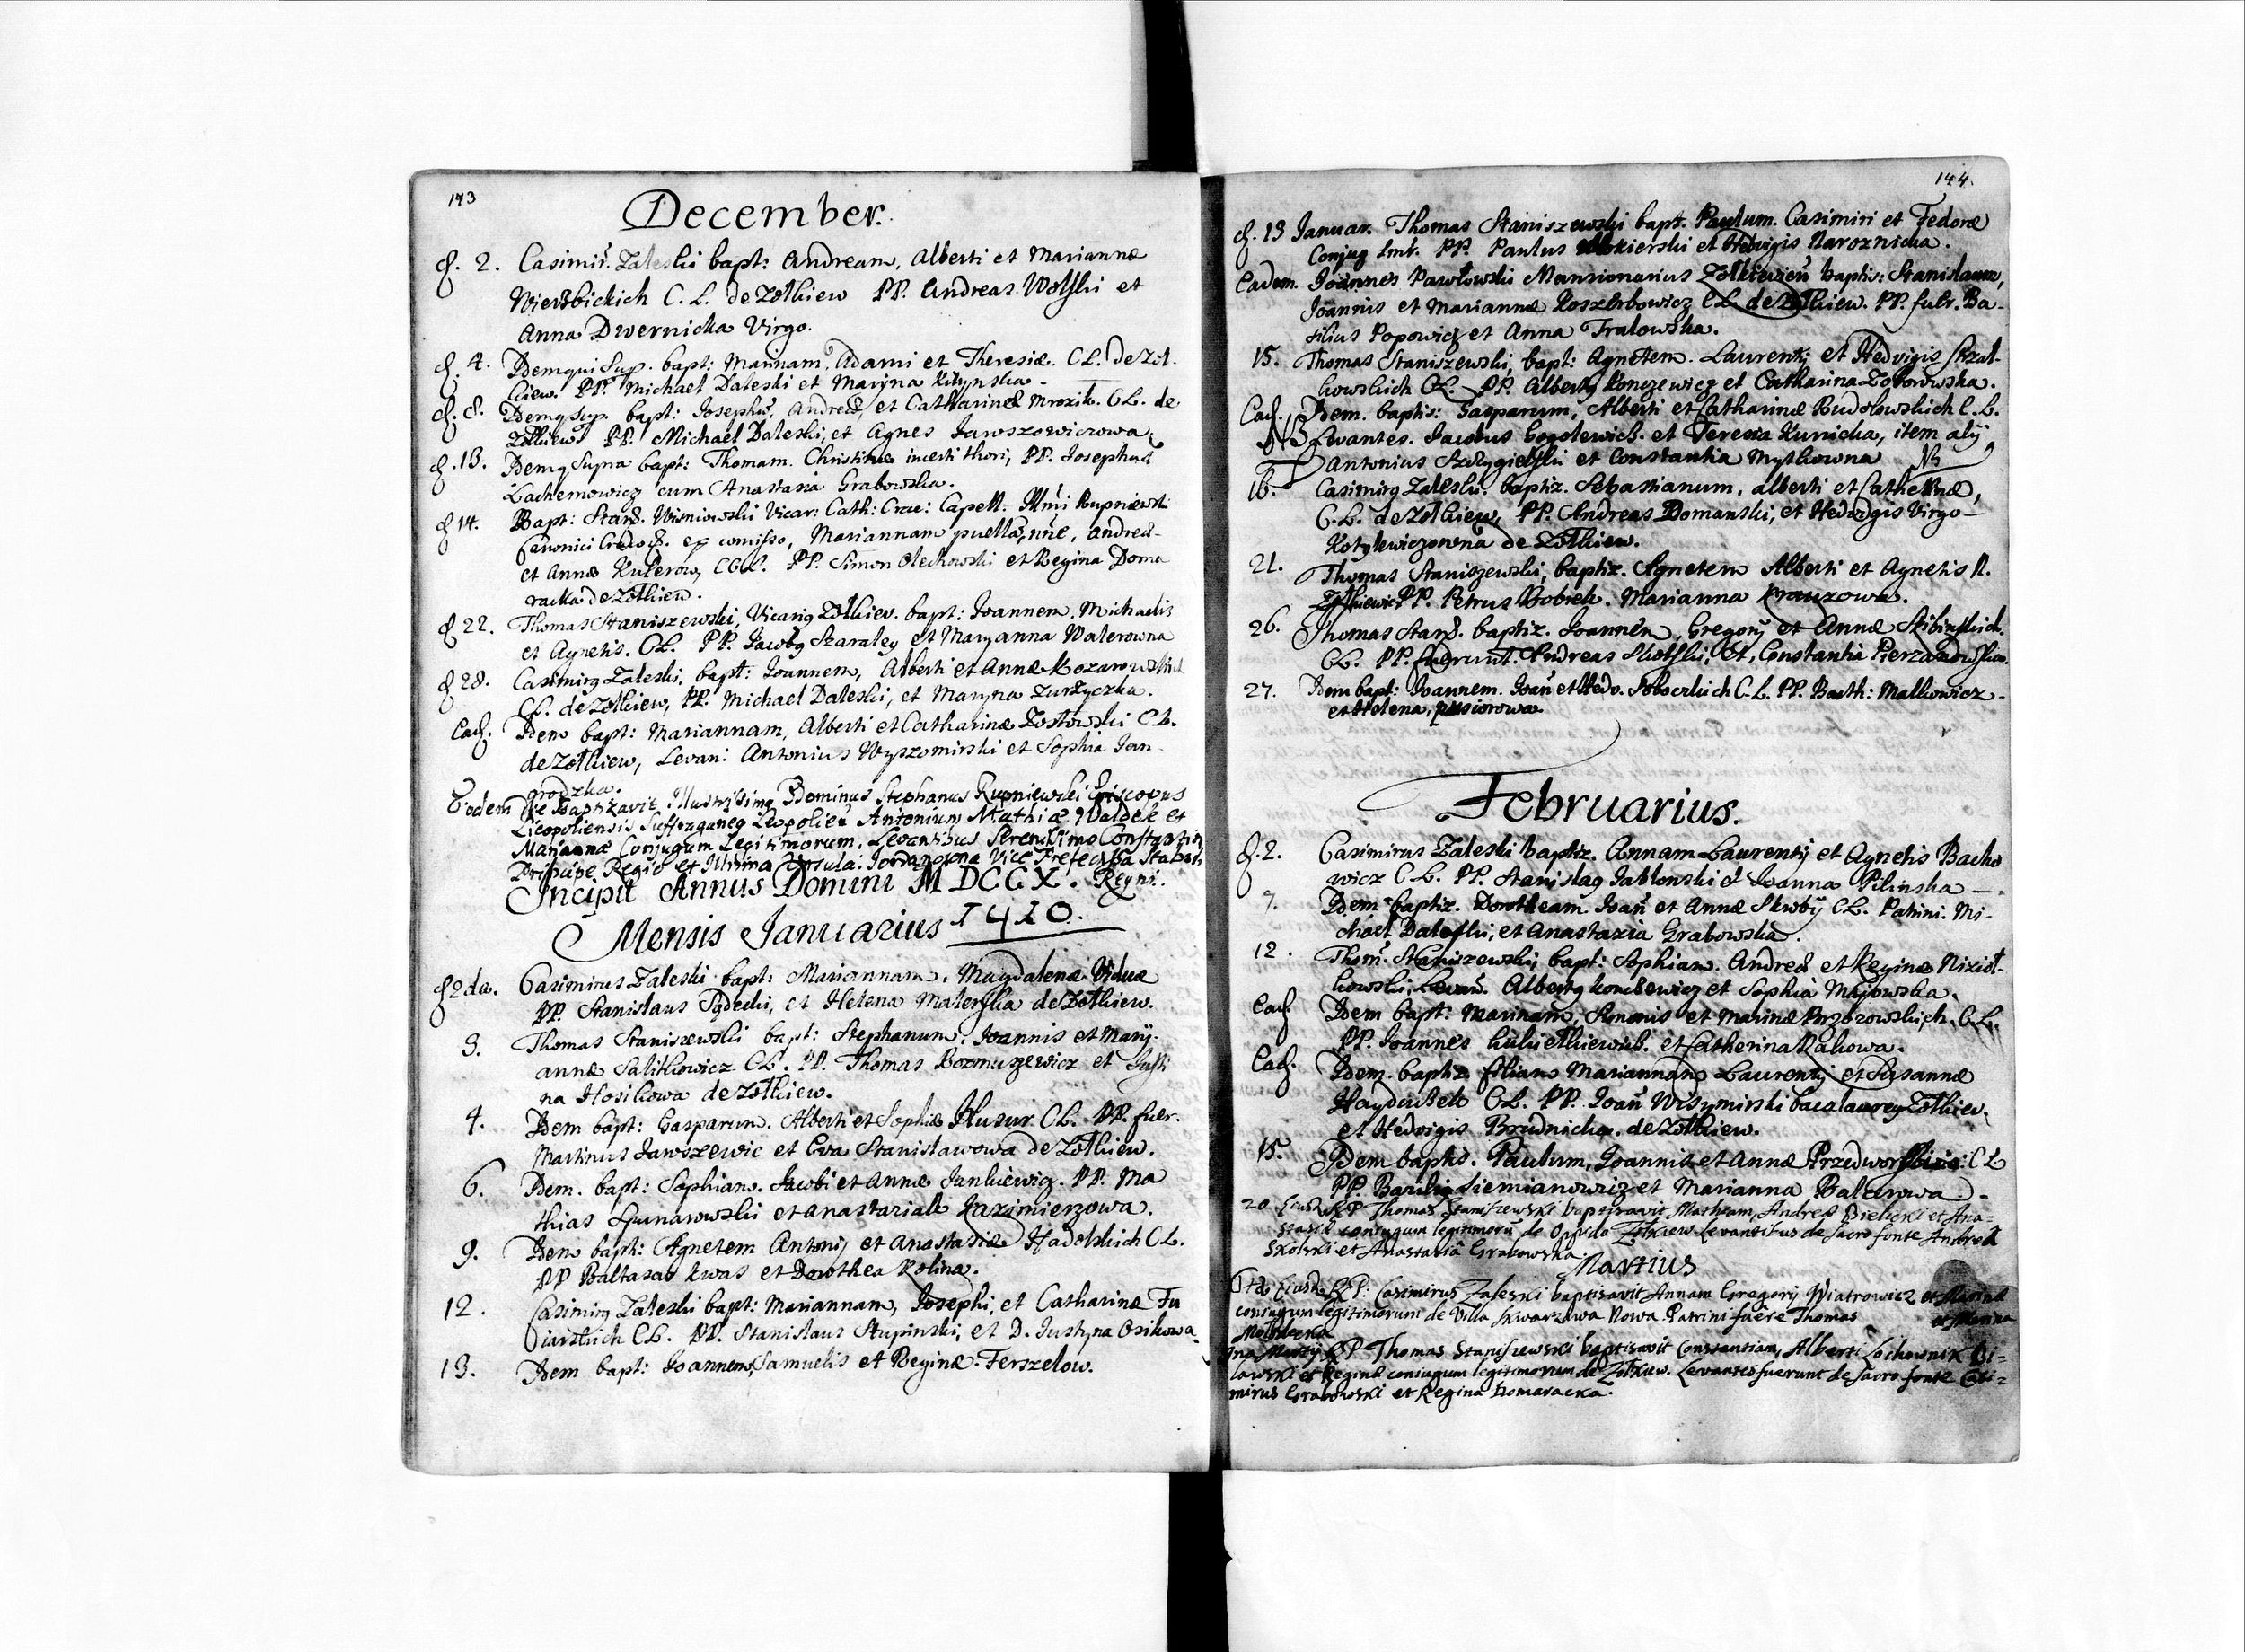 143
December.
d. 2. Casimir. Zaleski bapt: Andream, Alberti et Mariannæ
Wierzbickich C. L. de Zolkiew PP. Andreas Wolski et
Anna Dwernicka Virgo.
d. 4. Idem qui Sup. bapt: Mariam, Adami et Theresiæ. C L. de Zol-
kiew. PP. Michael Daleski et Maryna
d. 8. Idem q Sup. bapt: Josephū, Andreæ, et Catharinæ Mrozik. C L. de
Zolkiew PP. Michael Daleski, et Agnes Jawszowiczowa.
d. 13. Idem q Supra bapt: Thomam. Christinæ incerti thori, PP. Josephus
Lachemowicz cum Anastasia Grabowska.
d 14. Bapt: Wisniowski Vicar: Cath: Crac: Capell. Illmi Rupniewski
Canonici ex comisso, Mariannam puellā, Andreæ
et Annæ PP. Simon Olechowski et Regina Doma
racka de Zolkiew.
d 22. Thomas Staniszewski, Vicarig Zolkiev. bapt: Joannem. Michaelis
et Agnetis. C L. PP. Jacobg Szaraley et Maryanna Walerowna
d 28. Casimirg Zaleski, bapt: Joannem, Alberti et Annæ
C L. de Zolkiew, PP. Michael Daleski, et Maryna
Ead. Idem bapt: Mariannam, Alberti et Catharinæ Zostowski C L.
de Zolkiew, Levan: Antonius Wyszomirski et Sophia Jan-
grodzka.
Eodem Die Baptizavit Illustrissimg Dominus Stephanus Rupniewski Episcopus
Licopoliensis Suffraganeg Leopolień Antonium Mathiæ Waldek et
Mariannæ Conjugum Legitimorum, Levantibus Serenissimo Constantin
Principe Regio et Illma Ursula Jordanowna Vice
Regni.
Incipit Annus Domini MDCCX.
Mensis Januarius 1710.
d 2da. Casimirus Zaleski bapt: Mariannam, Magdalenæ Viduæ
PP. Stanislaus Sędecki, et Helena Malerska de Zolkiew.
3. Thomas Staniszewski bapt: Stephanum, Joannis et Mary-
annæ Salitkowicz C L. PP. Thomas Bozmuszewicz et Justi
na Hosikowa de Zolkiew.
4. Idem bapt: Gasparum. Alberti et Sophiæ Husur C L. PP. fuer.
Martinus Jawszewic et Eva Stanislawowa de Zolkiew.
6. Idem. bapt: Sophiam. Jacobi et Annæ Jankiewicz. PP. Ma
thias et Anastasia Kazimierzowa.
9. Idem bapt: Agnetem Antonij et Anastasiæ Hadelskich C L.
PP Baltasar Kwas et Dorothea Kolina.
12. Casimirg Zaleski bapt: Mariannam, Josephi, et Catharinæ Fu
iarskich C L. PP. Stanislaus Stupinski, et D. Justyna Osikowa.
13. Idem bapt: Joannem, Samuelis et Reginæ Ferszelow.
144.
d. 13 Januar. Thomas Staniszewski bapt. Paulum. Casimiri et Fedoræ
Conjug PP. Paulus et Hedvigis Naroznicka.
Eadem. Joannes Pawlowski Mansionarius Zolkievień baptis: Stanislaum,
Joannis et Mariannæ Koszerbowicz C L. de Zolkiew. PP. fuer. Ba-
silius Popowicz et Anna Tralowska.
15. Thomas Staniszewski, bapt: Agnetem. Laurentij et Hedvigis
C L. PP. Albertg Konczewicz et Catharina Zoborowska.
Ead. Idem. baptis: Gasparum, Alberti et Catharinæ Rudolowskich C. L.
Levantes. Jacobus Gogolewicz. et Teresia Kunicka, item alij
Antonius et Constantia Mytkowna
16. Casimirg Zaleski. baptiz. Sebastianum, Alberti et Catherinæ,
C. L. de Zolkiew, PP. Andreas Domanski, et Hedvigis Virgo-
Kotylewiczowna de Zolkiew.
21. Thomas Staniszewski, baptiz. Agnetem Alberti et Agnetis N.
PP. Petrus Bobrek. Marianna Krauzowa.
26. Thomas Stanis. baptiz. Joannem, Gregorij et Annæ Skibinskich.
C L. PP. fuerunt. Andreas Skolski, et, Constantia
27. Idem bapt: Joannem. Joań et Hedv. C L. PP. Barth: Malkowicz-
et Helena,
Februarius.
d. 2. Casimirus Zaleski baptiz. Annam Laurentij et Agnetis Bacho
wicz C L. PP. Stanislag Jablonski et Joanna Pilinska —.
7. Idem baptiz. Dorotheam. Joań et Annæ C L. Patrini. Mi-
chael Daleski, et Anastazia Grabowska.
12. Thom: Staniszewski, bapt: Sophiam. Andreæ et Reginæ Niziol-
kowski, Levań. Albertg Konczewicz et Sophia Majowska.
Ead. Idem bapt: Simonis et Marinæ C L.
PP. Joannes et Catherina Rakowa.
Ead. Idem. baptiz filiam Mariannam Laurentij et Susannæ
Hayduczek C L. PP. Joań Wisymirski bacalaureg Zolkiev.
et Hedvigis Brudnicka. de Zolkiew.
15. Idem baptis. Paulum, Joannis et Annæ C L
PP. Basilig Siemianowicz et Marianna Balcerowa -
20. Eiusd. RP Thomas Staniszewski baptizavit Mathiam, Andreæ Bielicki et Ana-
staziæ coniugum legitimorū de Opido Zolkiew Levantibus de Sacro fonte Andrea
Skolski et Anastasia Grabowska.
Martius
Eiusd. RP: Casimirus Zaleski baptisavit Annam Gregorij Wiatrowicz et Marinæ
coniugum legitimorum de Villa Skwarzawa Nowa. Patrini fuere Thomas et Marina
RP Thomas Staniszewski baptisavit Constantiam, Alberti
et Reginæ coniugum legitimorum de Zolkiew. Levantes fuerunt de Sacro fonte Casi-
mirus Grabowski et Regina Domaracka.